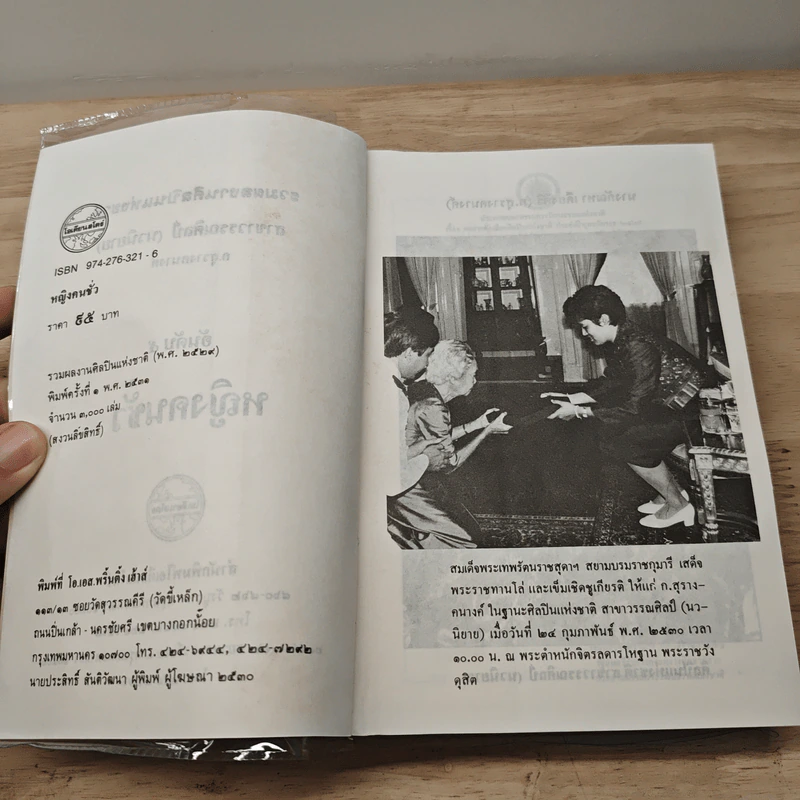 โอเดียนสโตร์
ISBN 974-276-321-6
หญิงคนชั่ว
ราคา ๕๕ บาท
รวมผลงานศิลปินแห่งชาติ (พ.ศ. ๒๕๒๙)
พิมพ์ครั้งที่ ๑ พ.ศ. ๒๕๓๑
จำนวน ๓,๐๐๐ เล่ม
(สงวนลิขสิทธิ์)
พิมพ์ที่ โอ.เอส.พริ้นติ้ง เฮ้าส์
๑๑๓/๑๓ ซอยวัดสุวรรณคีรี (วัดขี้เหล็ก)
ถนนปิ่นเกล้า - นครชัยศรี เขตบางกอกน้อย
กรุงเทพมหานคร ๑๐๗๐๐ โทร. ๔๒๔-๖๙๔๔, ๔๒๔-๗๒๙๒
นายประสิทธิ์ สันติวัฒนา ผู้พิมพ์ ผู้โฆษณา ๒๕๓๐
สมเด็จพระเทพรัตนราชสุดาฯ สยามบรมราชกุมารี เสด็จ
พระราชทานโล่ และเข็มเชิดชูเกียรติ ให้แก่ ก.สุราง-
คนางค์ ในฐานะศิลปินแห่งชาติ สาขาวรรณศิลป์ (นว-
นิยาย) เมื่อวันที่ ๒๔ กุมภาพันธ์ พ.ศ. ๒๕๓๐ เวลา
๑๐.๐๐ น. ณ พระตำหนักจิตรลดารโหฐาน พระราชวัง
ดุสิต